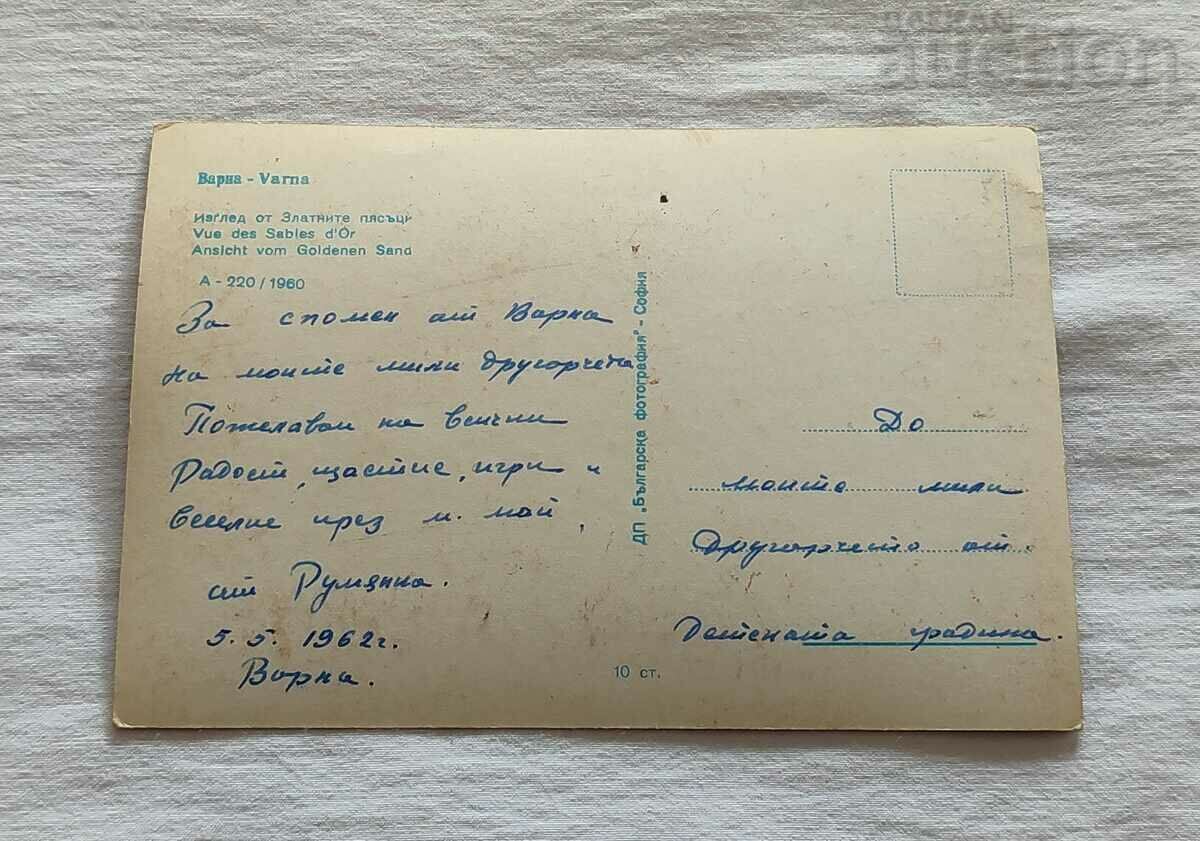 BALKAN
auction
Варна - Varna
Изглед от Златните пясъци
Vue des Sables d'Or
Ansicht vom Goldenen Sand
А - 220 / 1960
За спомен от Варна
на моите мили другарчета
Пожелавам на всички
Радост, щастие, игри и
веселие през м. май,
от Румянка.
5. 5. 1962 г.
Варна.
ДП „Българска фотография" - София
10 ст.
До
моите мили
другарчета от
Детската градина.